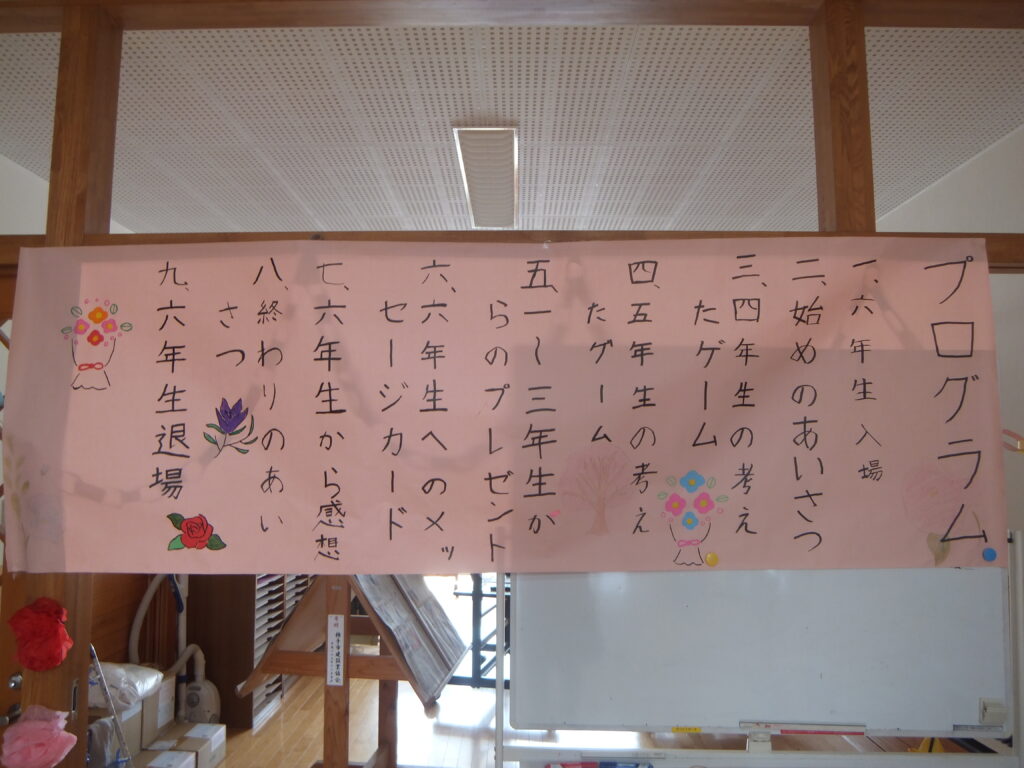 プログラム
一、六年生入場
二、始めのあいさつ
三、四年生の考え
たゲーム
四、五年生の考え
たゲーム
五、一〜三年生か
らのプレゼント
六、六年生へのメッ
セージカード
七、六年生から感想
八、終わりのあい
さつ
九、六年生退場